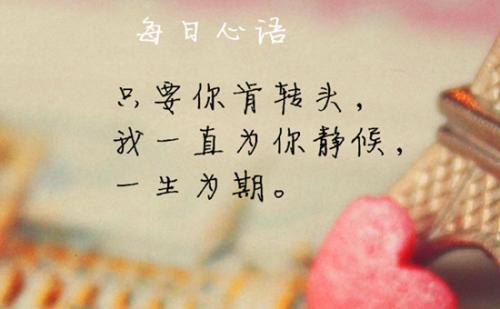 每日心语
只要你肯转头，
我一直为你静候，
一生为期。